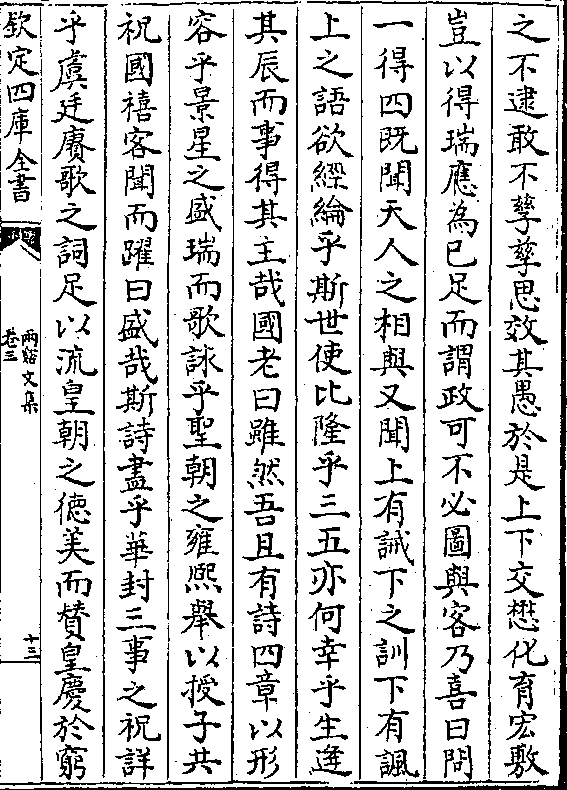 之不逮敢不孳孳思效其愚於是上下交懋化育宏敷
豈以得瑞應為已足而謂政可不必圖與客乃喜曰問
一得四既聞天人之相與又聞上有誡下之訓下有諷
上之語欲經綸乎斯世使比隆乎三五亦何幸乎生逢
其辰而事得其主哉國老曰雖然吾且有詩四章以形
容乎景星之盛瑞而歌詠乎聖朝之雍熙舉以授子共
祝國禧客聞而躍曰盛哉斯詩盡乎華封三事之祝詳
乎虞廷賡歌之詞足以流皇朝之徳美而賛皇慶於窮
欽定四庫全書
兩谿文集
卷三
十三